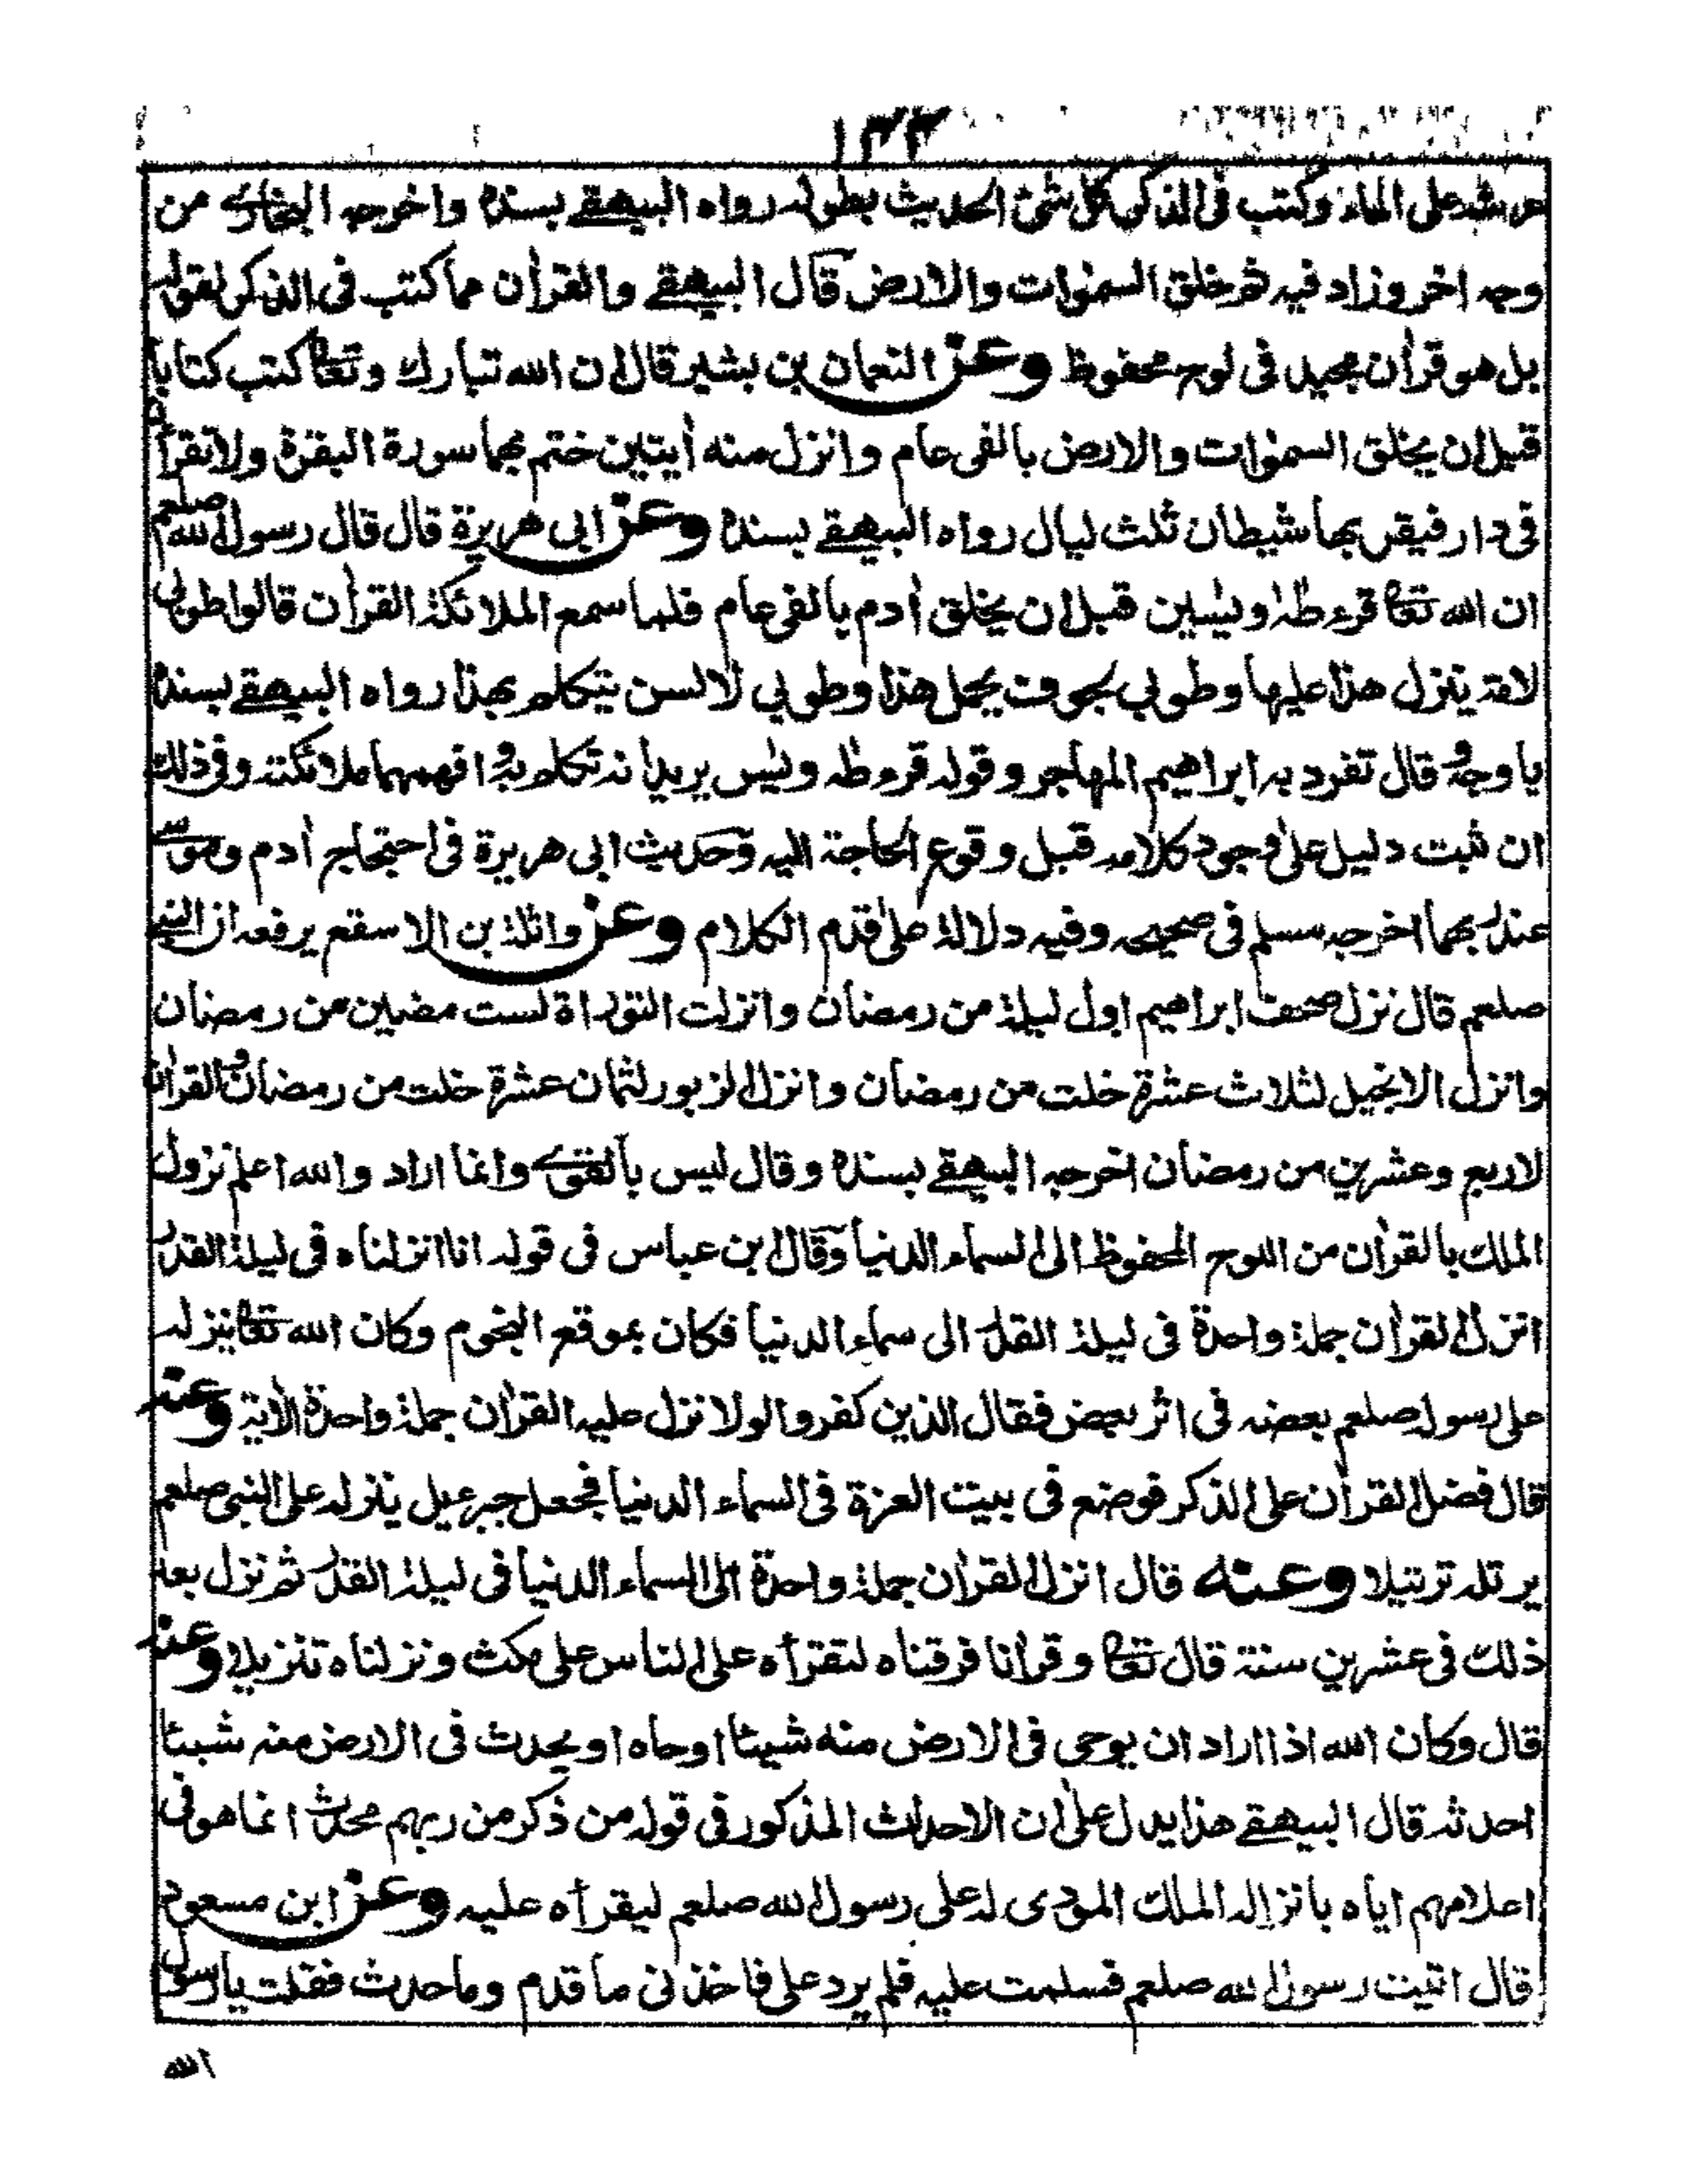 ١٣٣
عرشه على الماء وكتب فى الذكر كل شئ الحديث بطوله رواه البيهقے بسنده واخرجه البخارے من
وجه اخر وزاد فيه ثم خلق السمٰوات والارض قال البيهقے والقراٰن مما كتب فى الذكر لقوله
بل هو قراٰن مجيد فى لوح محفوظ وعن النعمان بن بشير قال ان الله تبارك وتعا كتب كتابا
قبل ان يخلق السمٰوات والارض بالفى عام وانزل منه اٰيتين ختم بهما سورة البقرة ولا تقراٰن
فى دار فيقربها شيطان ثلث ليال رواه البيهقے بسنده وعن ابى هريرة قال قال رسول الله صلعم
ان الله تعا قرء طٰه ويٰسين قبل ان يخلق اٰدم بالفى عام فلما سمع الملائكة القراٰن قالوا طوبى
لامة ينزل هذا عليها وطوبى لجوف يحمل هذا وطوبى لالسن يتكلم بهذا رواه البيهقے بسنده
باوجه وقال تفرد به ابراهيم المهاجر وقوله قرء طه ويٰس يريد انه تكلم به وافهمهما ملائكته وفى ذلك
ان ثبت دليل على وجود كلامه قبل وقوع الحاجة اليه وحديث ابى هريرة فى احتجاج اٰدم وموسے
عند ربهما اخرجه مسلم فى صحيحه وفيه دلالة على قدم الكلام وعن واثلة بن الاسقع يرفعه ان النبے
صلعم قال نزل صحف ابراهيم اول ليلة من رمضان وانزلت التوراة لست مضين من رمضان
وانزل الانجيل لثلاث عشرة خلت من رمضان وانزل الزبور لثمان عشرة خلت من رمضان والقراٰن
لاربع وعشرين من رمضان اخرجه البيهقے بسنده وقال ليس بالقوے وانما اراد والله اعلم نزول
الملك بالقراٰن من اللوح المحفوظ الى السماء الدنيا وقال ابن عباس فى قوله انا انزلناه فى ليلة القدر
انزل القراٰن جملة واحدة فى ليلة القدر الى سماء الدنيا فكان بموقع النجوم وكان الله تعا ينزله
على رسوله صلعم بعضه فى اثر بعض فقال الذين كفروا لولا نزل عليه القراٰن جملة واحدة الاٰية وعنه
قال فضل القراٰن على الذكر فوضع فى بيت العزة فى السماء الدنيا فجعل جبرءيل ينزله على النبى صلعم
يرتله ترتيلا وعنه قال انزل القراٰن جملة واحدة الى السماء الدنيا فى ليلة القدر ثم نزل بعد
ذلك فى عشرين سنة قال تعا وقراٰنا فرقناه لتقرأه على الناس على مكث ونزلناه تنزيلا وعنه
قال وكان الله اذا اراد ان يوحى فى الارض منه شيئا اوحاه او يحدث فى الارض منه شيئا
احدثه قال البيهقے هذا يدل على ان الاحداث المذكور فى قوله من ذكر من ربهم محدث انما هو فى
اعلامهم اياه بانزاله الملك المودى له على رسول الله صلعم ليقرأه عليه وعن ابن مسعود
قال اتيت رسول الله صلعم فسلمت عليه فلم يرد على فاخذنى ما قدم وما حدث فقلت يا رسول
الله